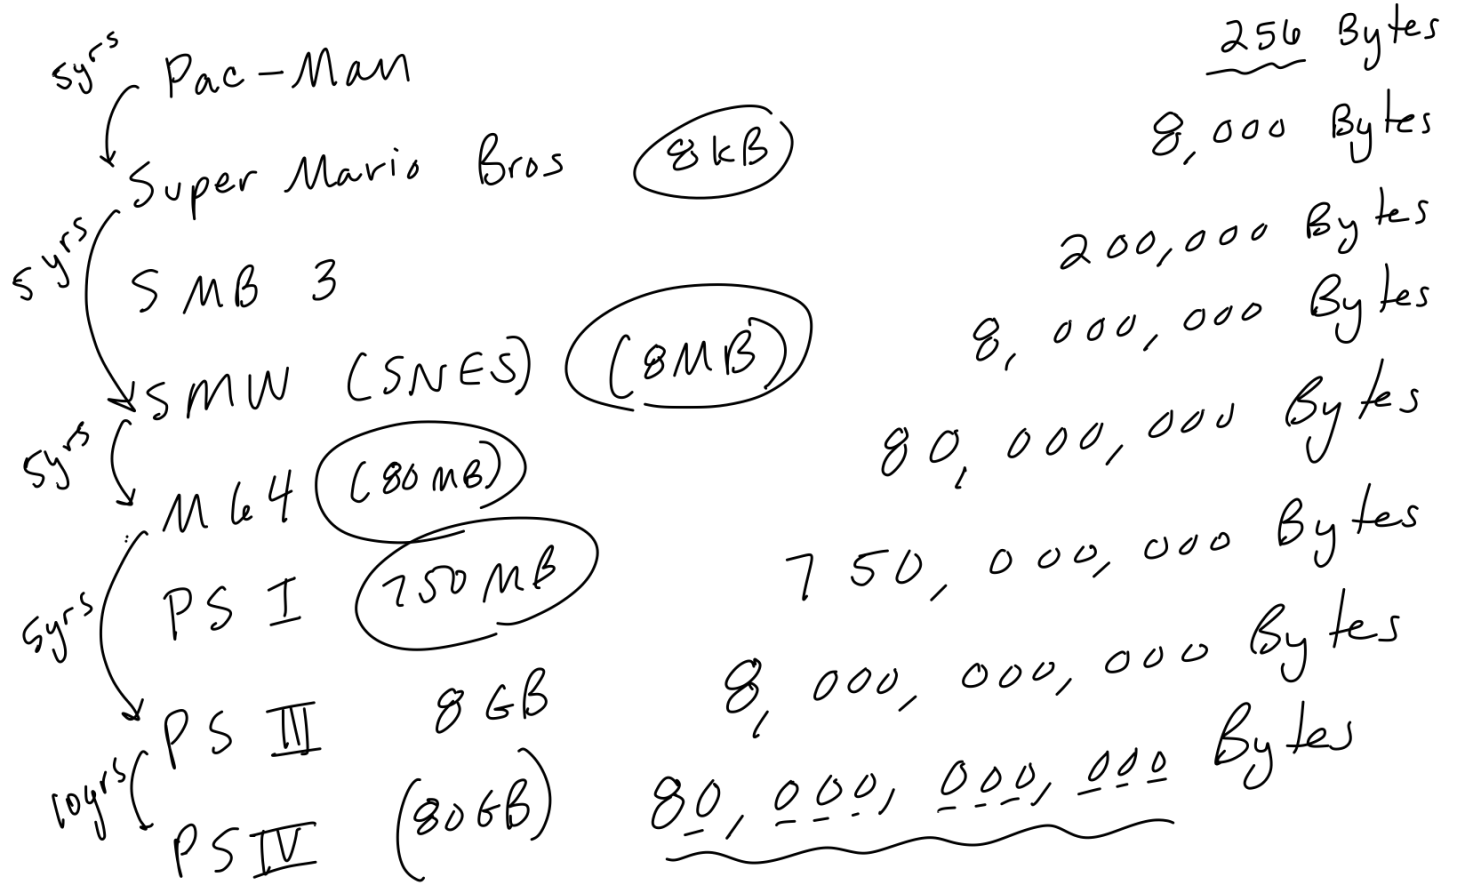 5yrs Pac-Man 256 Bytes
Super Mario Bros 8kB 8,000 Bytes
5yrs SMB 3 200,000 Bytes
SMW (SNES) (8MB) 8,000,000 Bytes
5yrs M64 (80MB) 80,000,000 Bytes
5yrs PS I 750MB 750,000,000 Bytes
PS III 8GB 8,000,000,000 Bytes
10yrs PS IV (80GB) 80,000,000,000 Bytes